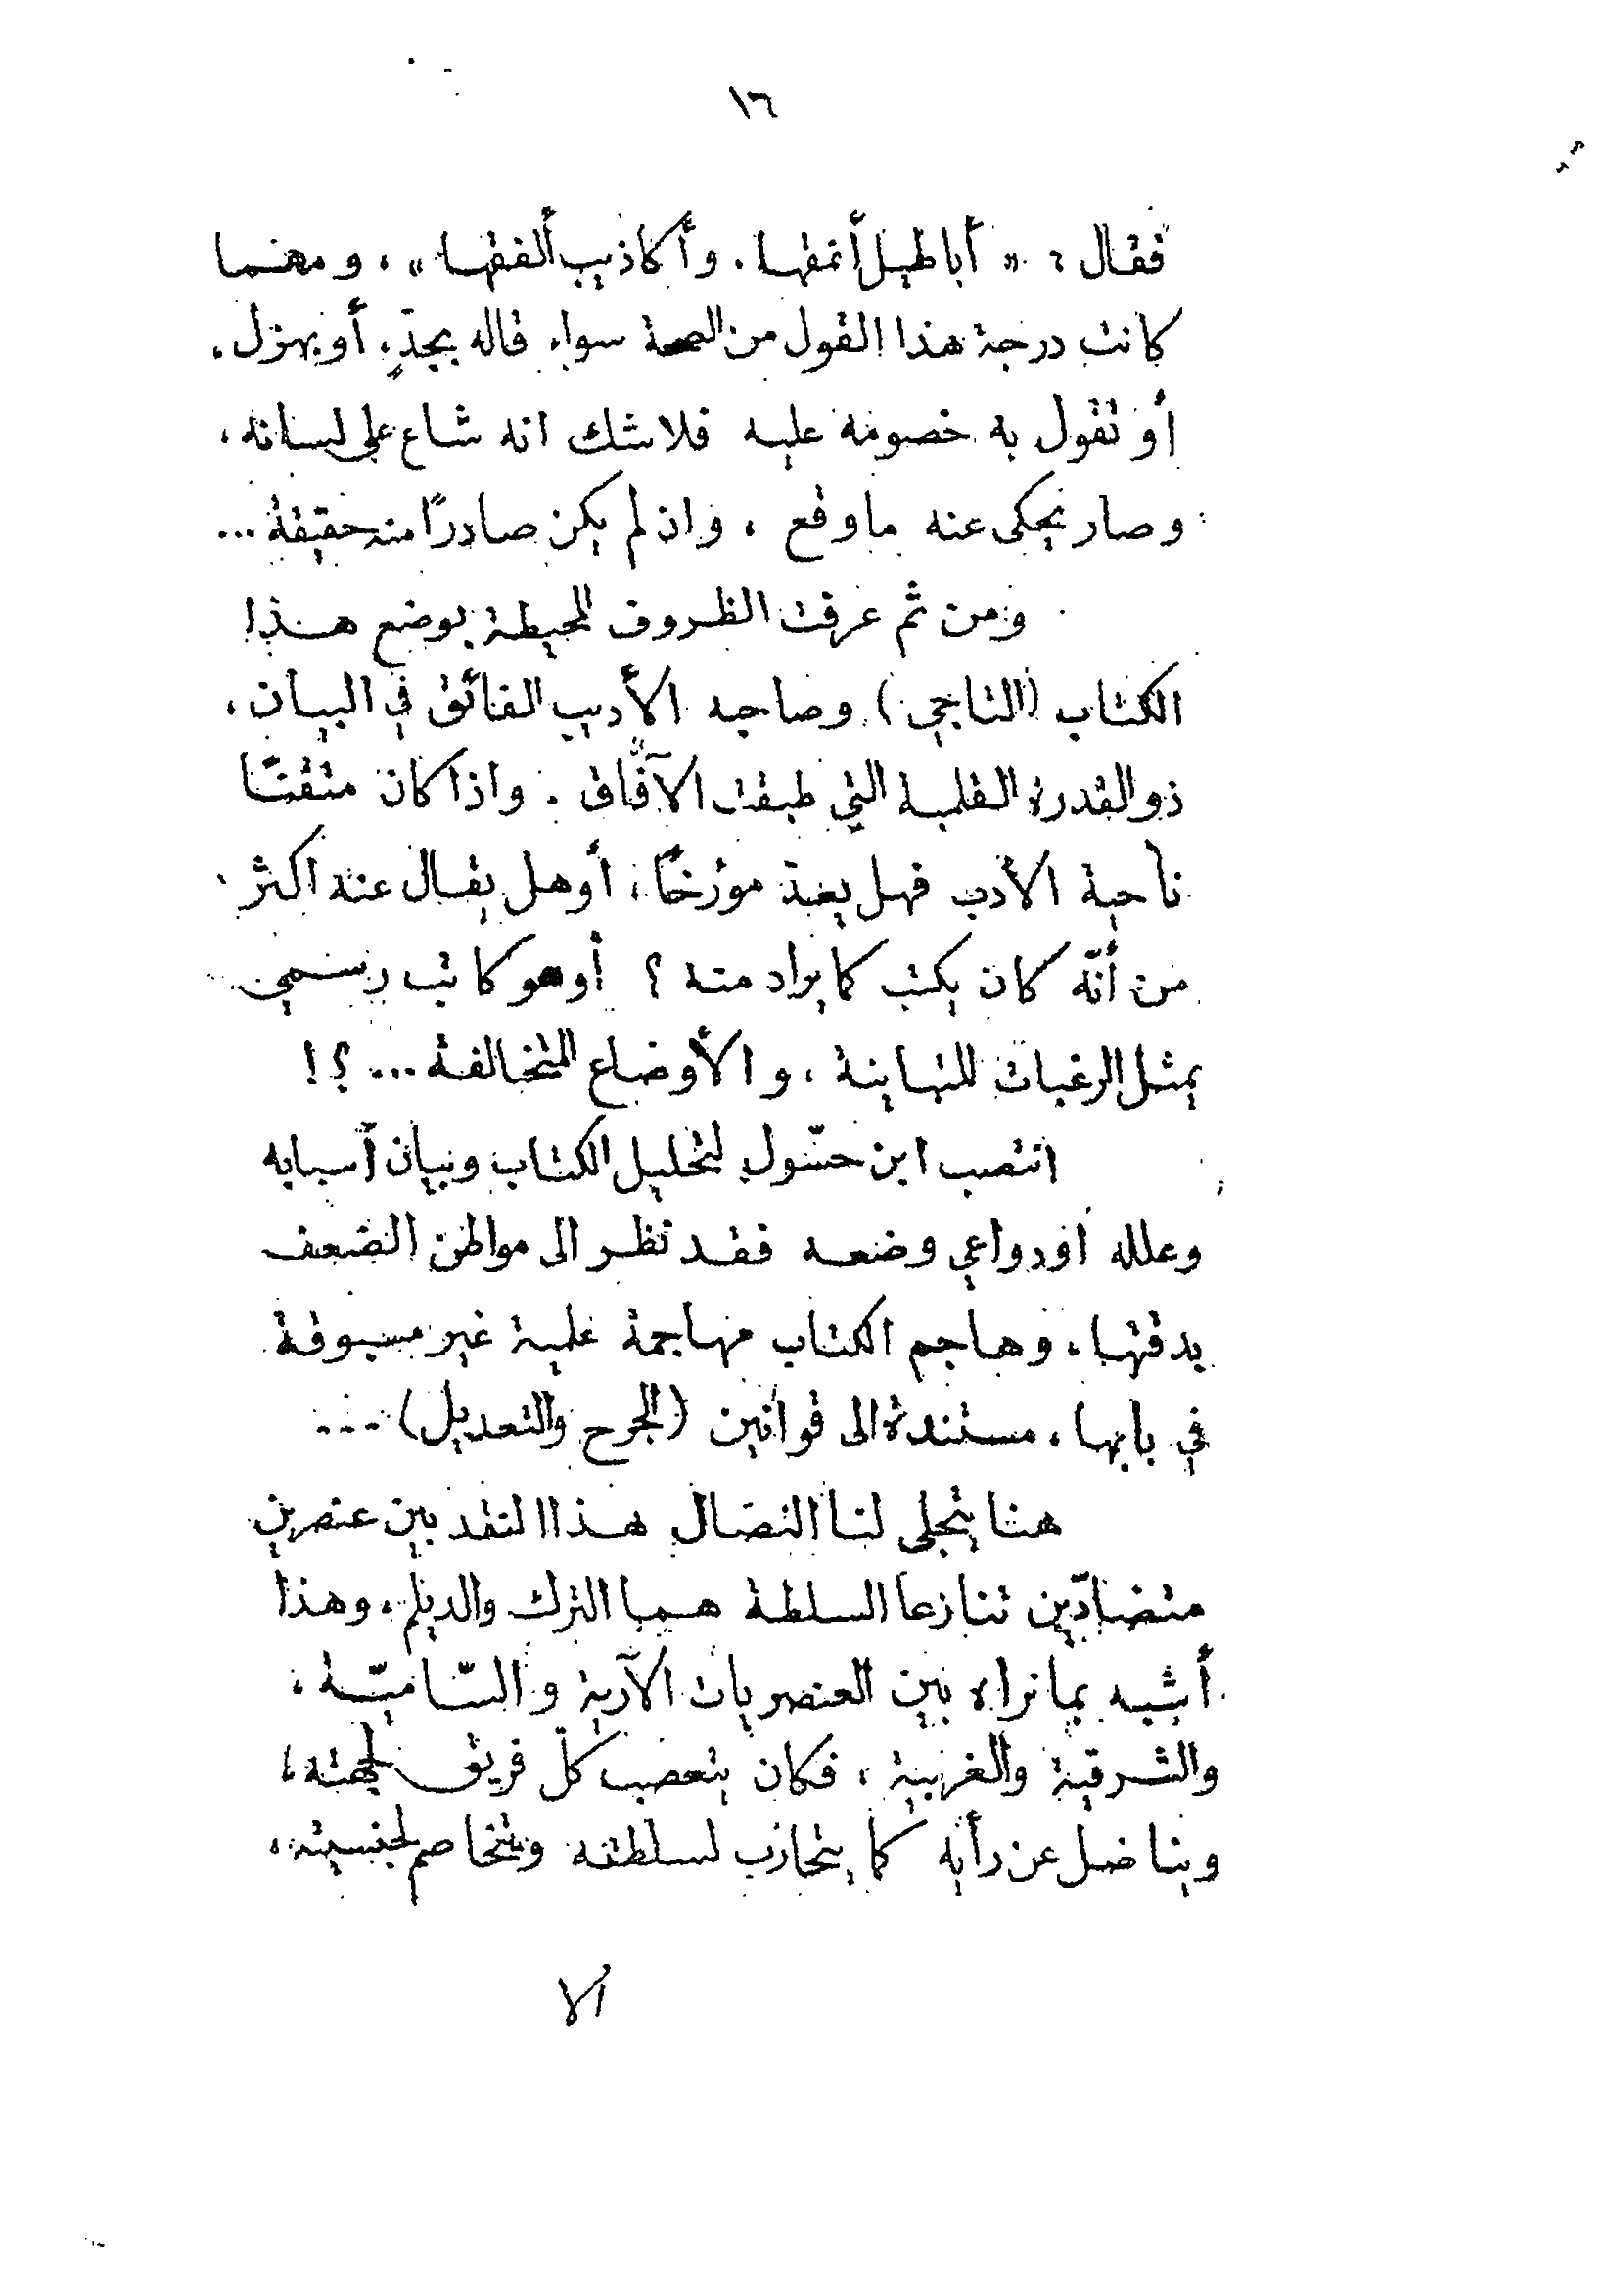 ١٦
فقال : « أباطيل أنمقها . وأكاذيب ألفقها » ، ومهما
كانت درجة هذا القول من الصحة سواء قاله بجدٍّ ، أو بهزل .
أو تقول به خصومه عليه فلا شك انه شاع على لسانه ،
وصار يحكى عنه ما وقع ، وان لم يكن صادرًا منه حقيقة ...
ومن ثم عرفت الظروف المحيطة بوضع هذا
الكتاب (التاجي) وصاحبه الأديب الفائق في البيان ،
ذو القدرة القلمية التي طبقت الآفاق . واذا كان متقنًا
ناحية الأدب فهل يعدّ مؤرخًا ، أو هل يقال عنه اكثر
من أنّه كان يكتب كما يراد منه ؟ أو هو كاتب رسمي
يمثل الرغبات المتباينة ، والأوضاع المتخالفة ... ؟!
انتصب ابن حسّول لتحليل الكتاب وبيان أسبابه
وعلله او دواعي وضعه فقد نظر الى مواطن الضعف
بدقتها ، وهاجم الكتاب مهاجمة علمية غير مسبوقة
في بابها ، مستندة الى قوانين (الجرح والتعديل) ...
هنا يتجلى لنا النضال هذا النقد بين عنصرين
متضادّين تنازعا السلطة هما الترك والديلم ، وهذا
أشبه بما نراه بين العنصريات الآرية والسّاميّة ،
والشرقية والغربية ، فكان يتعصب كلّ فريق لجهته ،
ويناضل عن رأيه كما يتحازب لسلطته ويتخاصم لجنسيته ،
الا